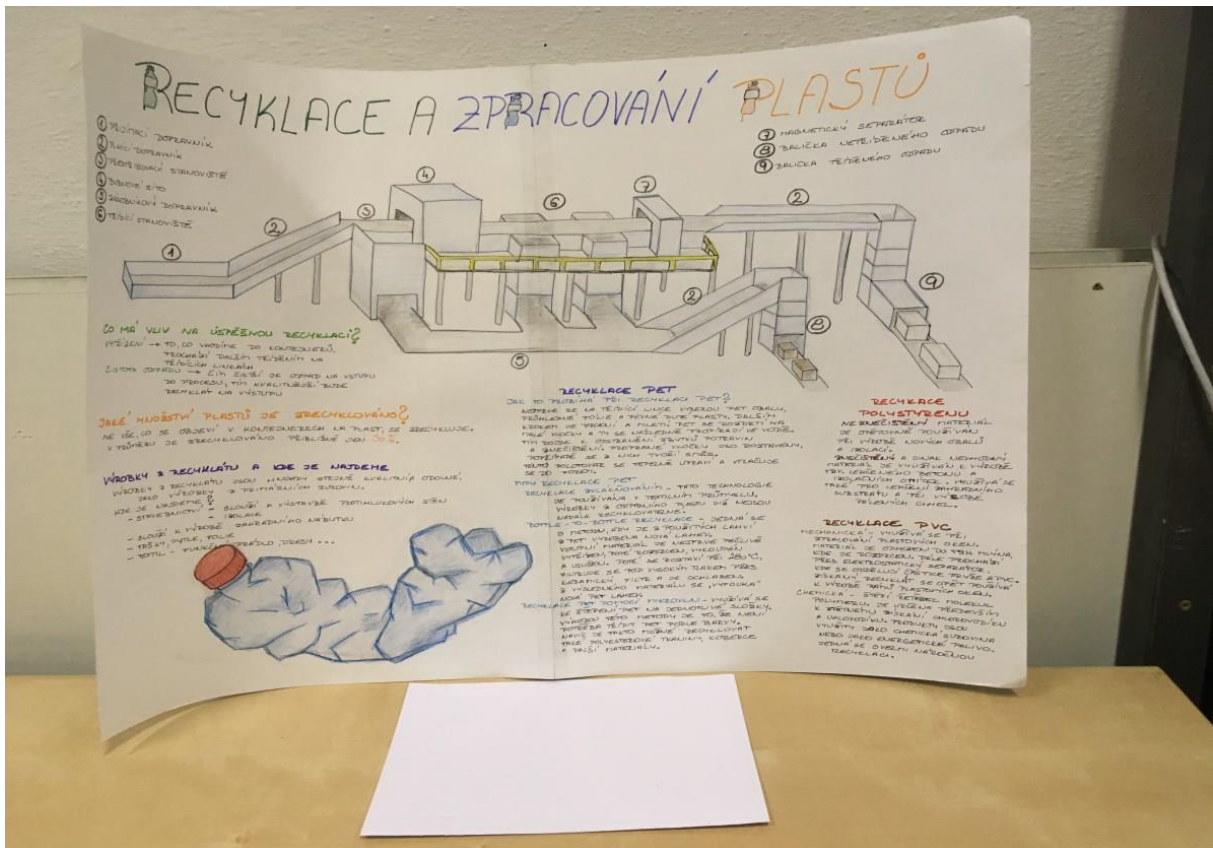 RECYKLACE A ZPRACOVÁNÍ PLASTŮ
① PŘIJÍMACÍ DOPRAVNÍK
② DOPRAVNÍK
③ STANOVIŠTĚ
④ DISKOVÉ SÍTO
⑤ DOPRAVNÍK
⑥ TŘÍDÍCÍ STANOVIŠTĚ
⑦ MAGNETICKÝ SEPARÁTOR
⑧ BALIČKA NETŘÍDĚNÉHO ODPADU
⑨ BALIČKA TŘÍDĚNÉHO ODPADU
1
2
3
4
6
7
2
2
9
8
5
CO MÁ VLIV NA ÚSPĚŠNOU RECYKLACI?
→ TO, CO VHODÍME DO KONTEJNERŮ,
PROCHÁZÍ DALŠÍM TŘÍDĚNÍM NA
TŘÍDÍCÍCH LINKÁCH
ČISTOTA ODPADU → ČÍM ČISTŠÍ JE ODPAD NA VSTUPU
DO PROCESU, TÍM KVALITNĚJŠÍ BUDE
RECYKLÁT NA VÝSTUPU
JAKÉ MNOŽSTVÍ PLASTŮ JE ZRECYKLOVÁNO?
NE VŠE, CO SE OBJEVÍ V KONTEJNERECH NA PLAST, SE ZRECYKLUJE.
V PRŮMĚRU JE ZRECYKLOVÁNO PŘIBLIŽNĚ JEN 30%.
VÝROBKY Z RECYKLÁTU A KDE JE NAJDEME
VÝROBKY Z RECYKLÁTU JSOU MNOHDY STEJNĚ KVALITNÍ A ODOLNÉ,
JAKO VÝROBKY Z PRIMÁRNÍCH SUROVIN.
KDE JE NAJDEME?
- STAVEBNICTVÍ - SLOUŽÍ K VÝSTAVBĚ PROTIHLUKOVÝCH STĚN
- IZOLACE
- SLOUŽÍ K VÝROBĚ ZAHRADNÍHO NÁBYTKU
- TAŠKY, PYTLE, FOLIE
- TEXTIL - FUNKČNÍ PRÁDLO, DRESY ...
RECYKLACE PET
JAK TO PROBÍHÁ PŘI RECYKLACI PET?
NEJPRVE SE NA TŘÍDÍCÍ LINCE VYBEROU PET OBALY,
PRŮHLEDNÉ FOLIE A PEVNÉ DUTÉ PLASTY. DALŠÍM
KROKEM JE DRCENÍ A MLETÍ. PET SE ROZDRTÍ NA
MALÉ VLOČKY A TY SE NÁSLEDNĚ PROPÍRAJÍ VE VODĚ.
TÍM DOJDE K ODSTRANĚNÍ ZBYTKŮ POTRAVIN
A ZNEČIŠTĚNÍ. PROPRANÉ VLOČKY JSOU ROZTAVENY,
POPŘÍPADĚ SE Z NICH TVOŘÍ SMĚS.
TENTO POLOTOVAR SE TEPELNĚ UPRAVÍ A VTLAČUJE
SE DO FOREM.
TYPY RECYKLACE PET
RECYKLACE ZVLÁKŇOVÁNÍM - TATO TECHNOLOGIE
JE POUŽÍVÁNA V TEXTILNÍM PRŮMYSLU.
VÝROBKY Z ODPADNÍHO PLASTU JIŽ NEJSOU
NADÁLE RECYKLOVATELNÉ.
BOTTLE-TO-BOTTLE RECYKLACE - JEDNÁ SE
O METODU, KDY JE Z POUŽITÝCH LAHVÍ
Z PET VYROBENA NOVÁ LAHEV.
VSTUPNÍ MATERIÁL JE NEJPRVE PEČLIVĚ
VYTŘÍDĚN, POTÉ ROZDRCEN, VYPRÁN
A USUŠEN. POTÉ SE ROZTAVÍ PŘI 280 °C,
EXTRUDUJE SE POD VYSOKÝM TLAKEM PŘES
KERAMICKÝ FILTR A JE OCHLAZEN.
Z VÝSLEDNÉHO MATERIÁLU SE "VYFOUKÁ"
NOVÁ PET LAHEV.
RECYKLACE PET POMOCÍ MIKROVLN - VYUŽÍVÁ SE
KE ŠTĚPENÍ PET NA JEDNOTLIVÉ SLOŽKY.
VÝHODOU TÉTO METODY JE TO, ŽE NENÍ
POTŘEBA TŘÍDIT PET PODLE BARVY.
NAVÍC JE TAKTO MOŽNÉ RECYKLOVAT
TAKÉ POLYESTEROVÉ TKANINY, KOBERCE
A DALŠÍ MATERIÁLY.
RECYKACE
POLYSTYRENU
NEZNEČIŠTĚNÝ MATERIÁL
JE OPĚTOVNĚ POUŽÍVÁN
PŘI VÝROBĚ NOVÝCH OBALŮ
A IZOLACÍ.
ZNEČIŠTĚNÝ A JINAK NEVHODNÝ
MATERIÁL JE VYUŽÍVÁN K VÝROBĚ
LEHČENÉHO BETONU A
IZOLAČNÍCH OMÍTEK. VYUŽÍVÁ SE
TAKÉ PRO LEHČENÍ ZAHRADNÍHO
SUBSTRÁTU A PŘI VÝROBĚ
PÁLENÝCH CIHEL.
RECYKLACE PVC
MECHANICKÁ - VYUŽÍVÁ SE PŘI
ZPRACOVÁNÍ PLASTOVÝCH OKEN.
MATERIÁL JE ODVEZEN DO MLÝNA,
KDE JE ROZDRCEN. DÁLE PROCHÁZÍ
PŘES ELEKTROSTATICKÝ SEPARÁTOR,
KDE SE ODDĚLUJÍ ČÁSTICE PRYŽE A PVC.
ZÍSKANÝ RECYKLÁT SE OPĚT POUŽÍVÁ
K VÝROBĚ RÁMŮ PLASTOVÝCH OKEN.
CHEMICKÁ - ŠTĚPÍ ŘETĚZEC MOLEKUL
POLYMERU. JE URČENA PŘEDEVŠÍM
K ZPĚTNÉMU ZÍSKÁNÍ CHLOROVODÍKU
A UHLOVODÍKŮ. PRODUKTY JSOU
VYUŽITY JAKO CHEMICKÁ SUROVINA
NEBO JAKO ENERGETICKÉ PALIVO.
JEDNÁ SE O VELMI NÁROČNOU
RECYKLACI.